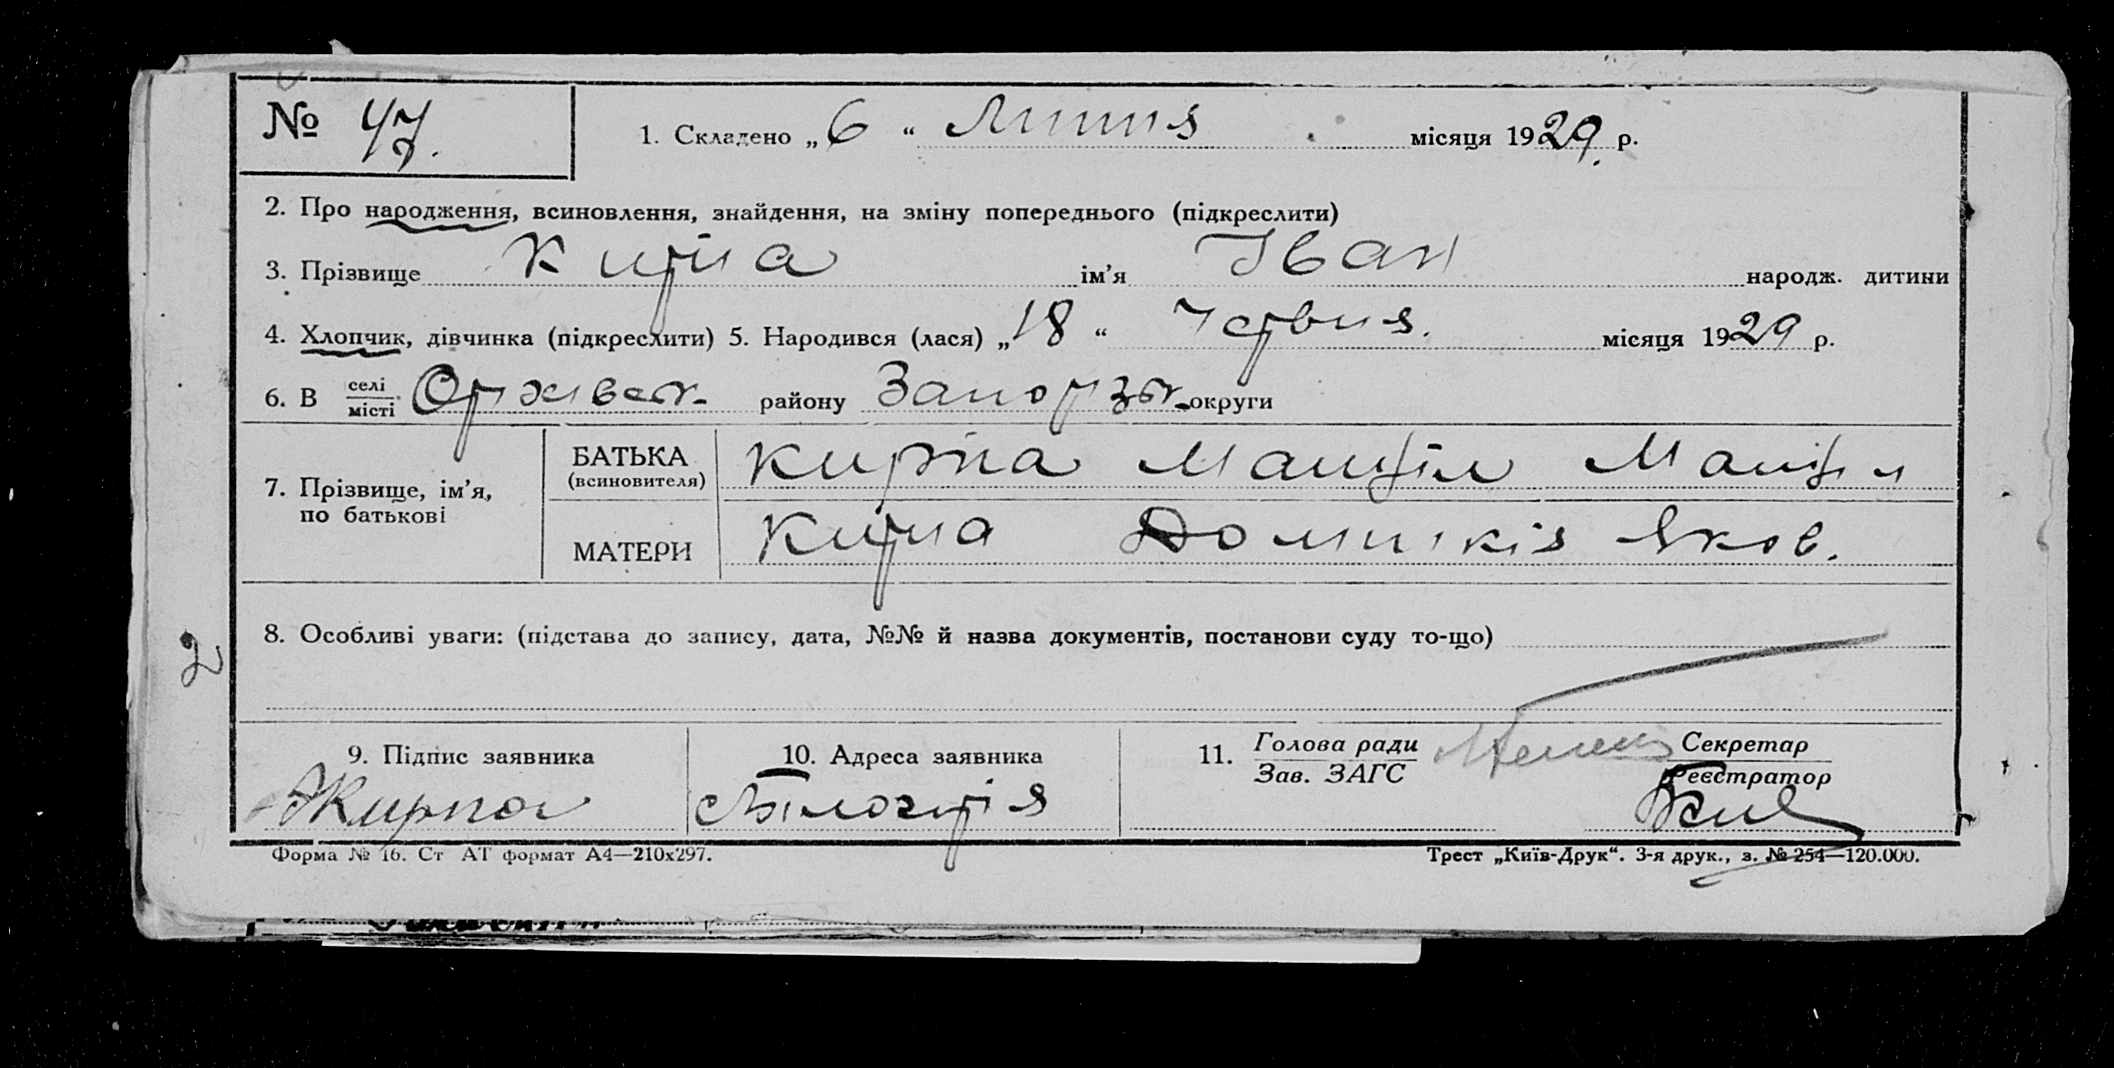 № 47.
1. Складено „6“ Липня місяця 1929. р.
2. Про народження, всиновлення, знайдення, на зміну попереднього (підкреслити)
3. Прізвище Кирпа ім’я Іван народж. дитини
4. Хлопчик, дівчинка (підкреслити) 5. Народився (лася) „18“ Червня. місяця 1929 р.
6. В селі місті району Запорізьк. округи
7. Прізвище, ім’я, по батькові
БАТЬКА (всиновителя) Кирпа
МАТЕРИ Кирпа Яков.
2
8. Особливі уваги: (підстава до запису, дата, №№ й назва документів, постанови суду то-що)
9. Підпис заявника 10. Адреса заявника 11. Голова ради Секретар
Зав. ЗАГС Реєстратор
Кирпа
Форма № 16. Ст АТ формат А4—210х297. Трест „Київ-Друк“. 3-я друк., з. № 254—120.000.